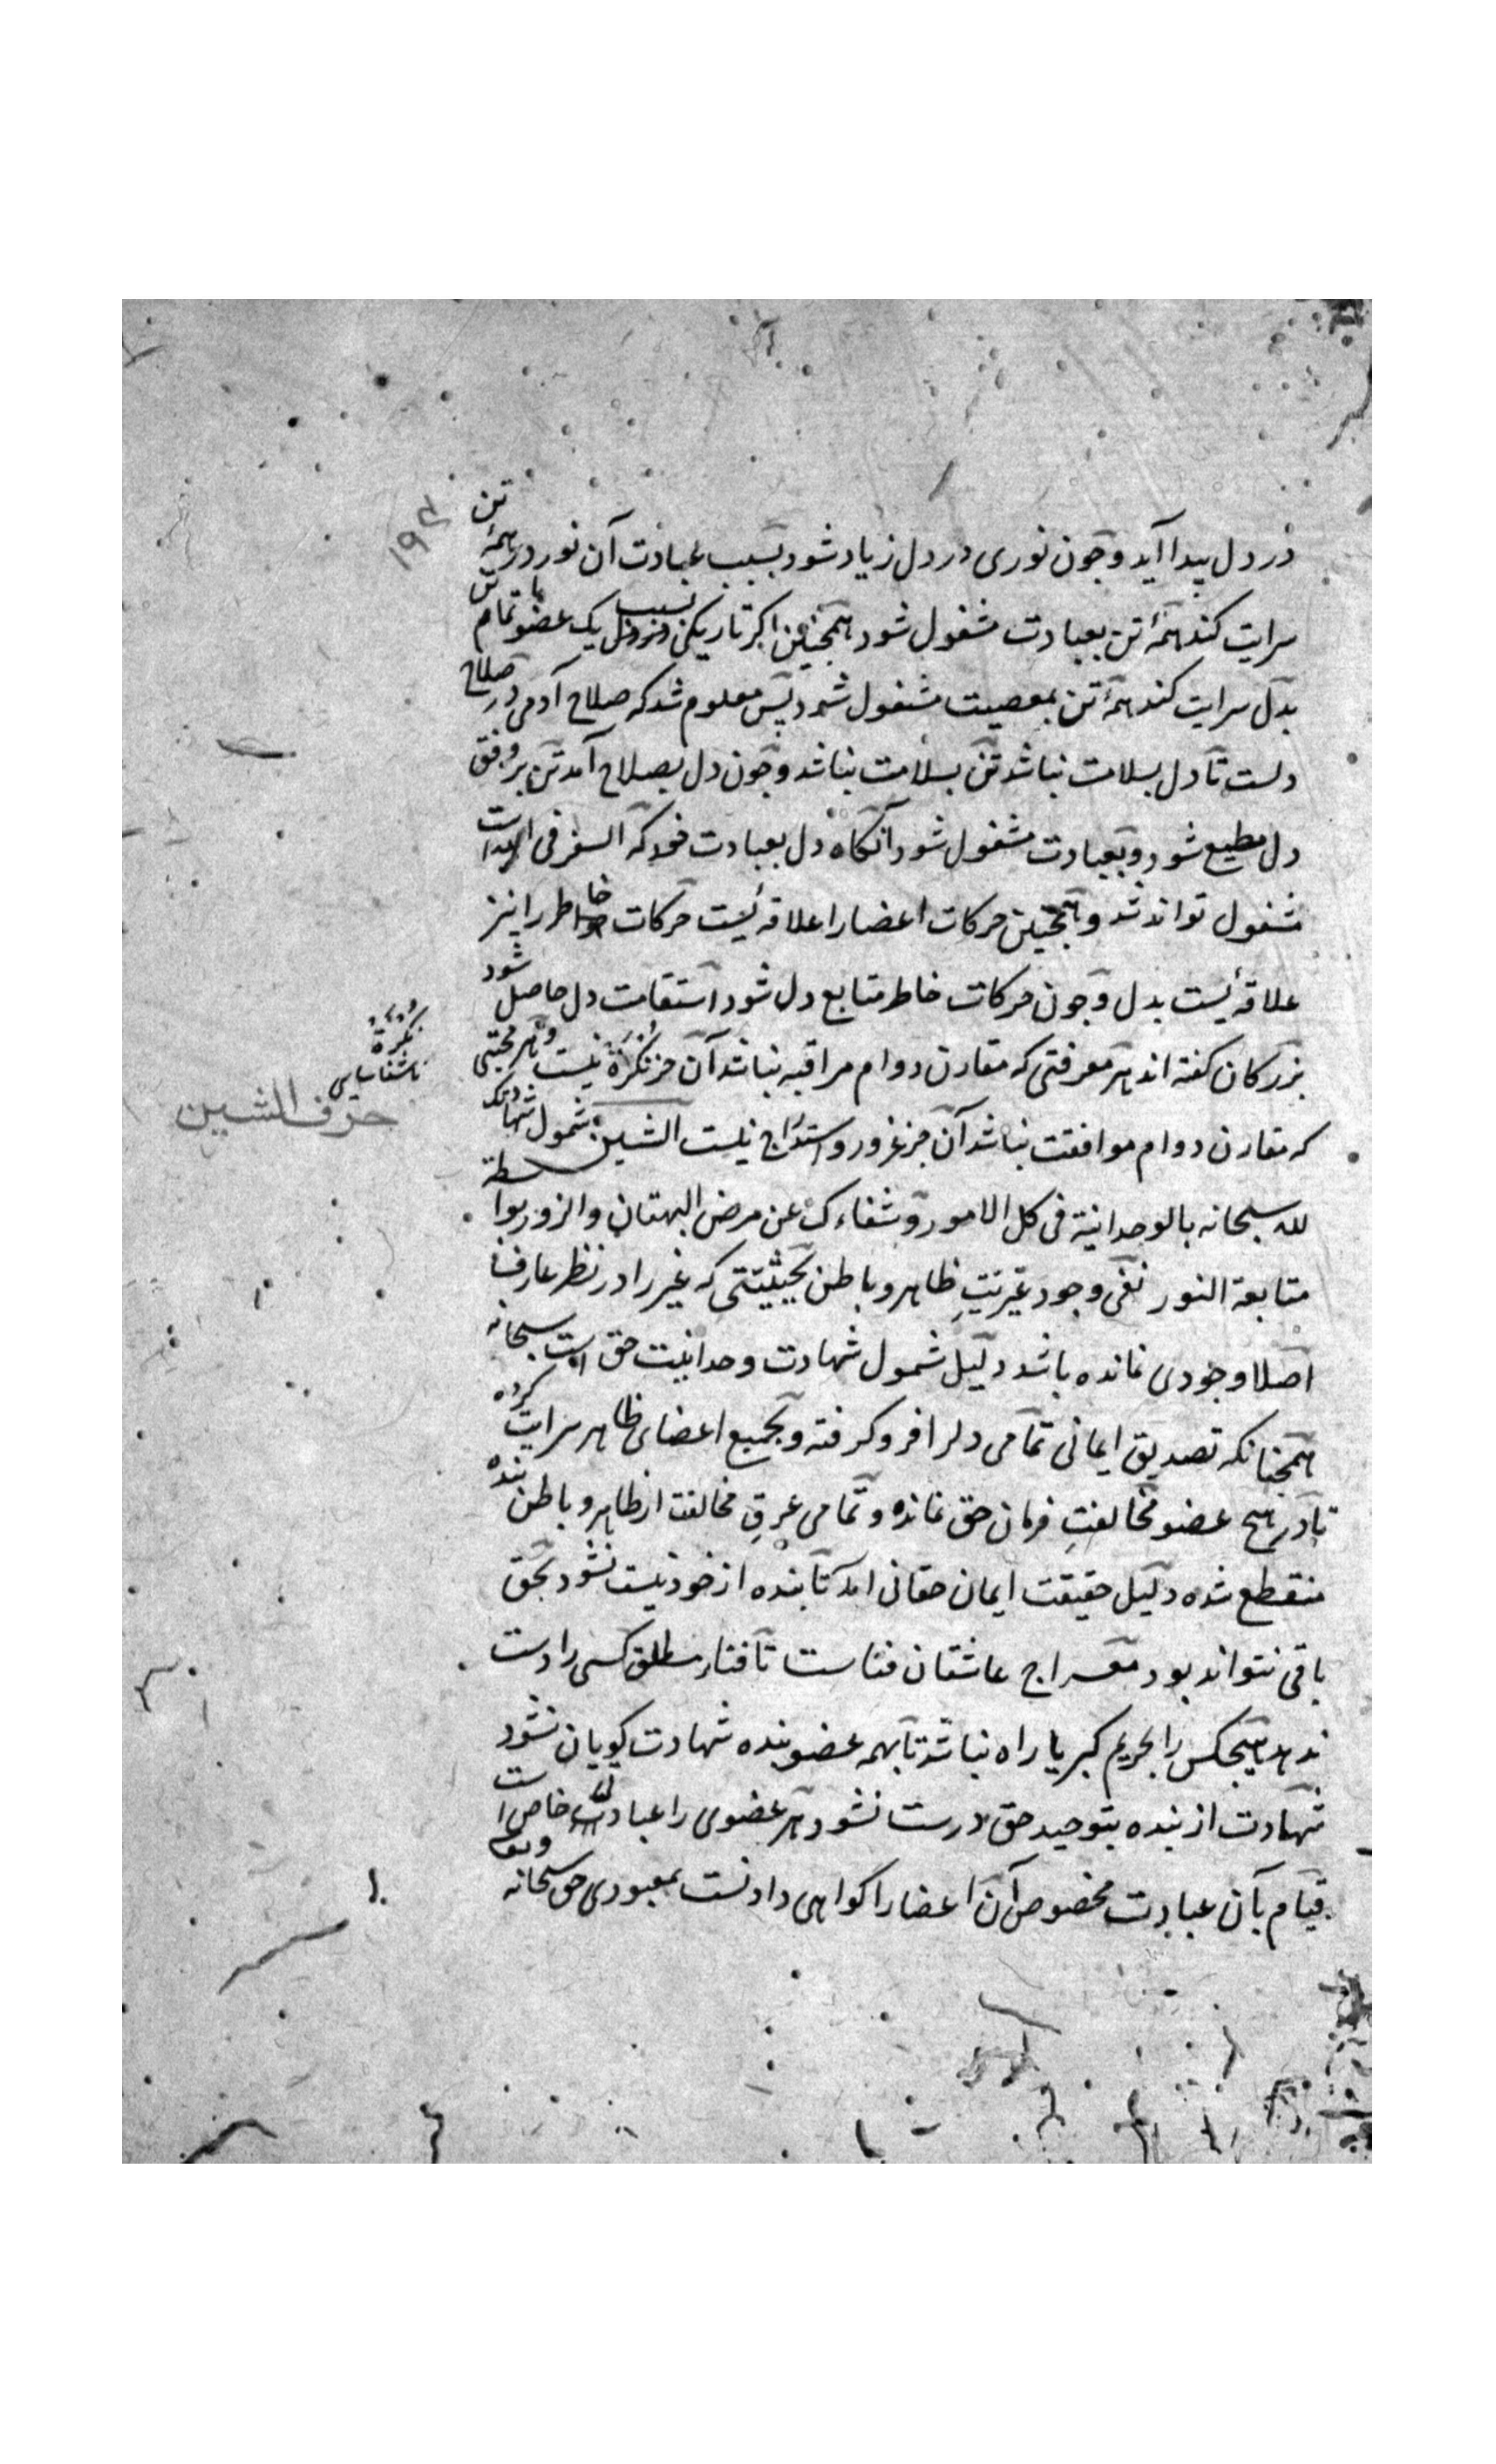 در دل پیدا آید و چون نوری در دل زیاد شود بسبب عبادت آن نور در همهٔ تن
سرایت کند همهٔ تن بعبادت مشغول شود همچنین اکر تاریکی بسبب یک عضو تمام
بدل سرایت کند همهٔ تن بمعصیت مشغول شود پس معلوم شد که صلاح آدمی در صلاح
دلست تا دل بسلامت نباشد تن بسلامت نباشد و چون دل بصلاح آمد تن بر وفق
دل مطیع شود و بعبادت مشغول شود آنکاه دل بعبادت خود که السفر فی الله است
مشغول تواند شد و همچنین حرکات اعضا را علاقه ئیست حرکات خاطر را نیز
علاقه ئیست بدل و چون حرکات خاطر متابع دل شود استقامت دل حاصل شود
بزرکان کفته اند هر معرفتی که مقارن دوام مراقبه نباشد آن جز نکرة نیست و هر محبتی
که مقارن دوام موافقت نباشد آن جز غرور و استدراج نیست الشین شمول شهادتک
لله سبحانه بالوحدانیة فی کل الامور و شفاءک عن مرض البهتان والزور بواسطة
متابعة النور نفی وجود غیریتِ ظاهر و باطن بحیثیتی که غیر را در نظر عارف
اصلا وجودی نمانده باشد دلیل شمول شهادت وحدانیت حق است سبحانه
همچنانکه تصدیق ایمانی تمامی دل را فرو کرفته و بجمیع اعضای ظاهر سرایت کرده
تا در هیچ عضو مخالفتِ فرمان حق نمانده و تمامی عرقِ مخالفت از ظاهر و باطن بنده
منقطع شده دلیل حقیقت ایمان حقانی آمد تا بنده از خود نیست نشود بحق
باقی نتواند بود معراج عاشقان فناست تا فناء مطلق کسی را دست
ندهد هیچکس را بحریم کبریا راه نباشد تا بهمه عضو بنده شهادت کویان نشود
شهادت از بنده بتوحید حق درست نشود هر عضوی را عبادتی خاص است
قیام بآن عبادت مخصوص آن اعضا را کواهی دادنست بمعبودی حق سبحانه
نکرة
ناشناسایی
حرف الشین